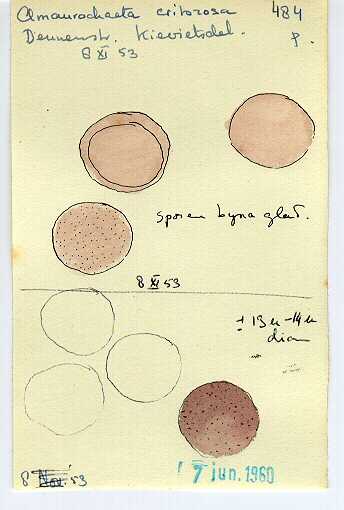 Amaurochaeta cribrosa 484
Dennenstr. Kievietsdel. P.
8 XI 53
sporen byna glad.
8 XI 53
± 13 u - 14 u
diam
8 Nov. 53
7 jun. 1960